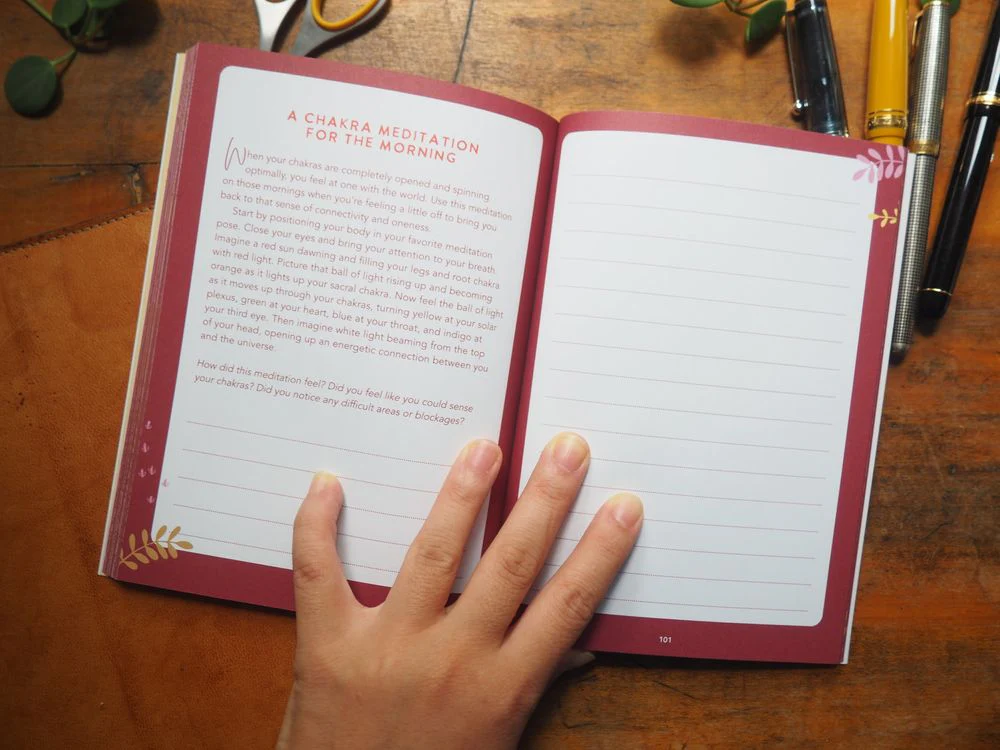 A CHAKRA MEDITATION
FOR THE MORNING
When your chakras are completely opened and spinning
optimally, you feel at one with the world. Use this meditation
on those mornings when you're feeling a little off to bring you
back to that sense of connectivity and oneness.
Start by positioning your body in your favorite meditation
pose. Close your eyes and bring your attention to your breath.
Imagine a red sun dawning and filling your legs and root chakra
with red light. Picture that ball of light rising up and becoming
orange as it lights up your sacral chakra. Now feel the ball of light
as it moves up through your chakras, turning yellow at your solar
plexus, green at your heart, blue at your throat, and indigo at
your third eye. Then imagine white light beaming from the top
of your head, opening up an energetic connection between you
and the universe.
How did this meditation feel? Did you feel like you could sense
your chakras? Did you notice any difficult areas or blockages?
101